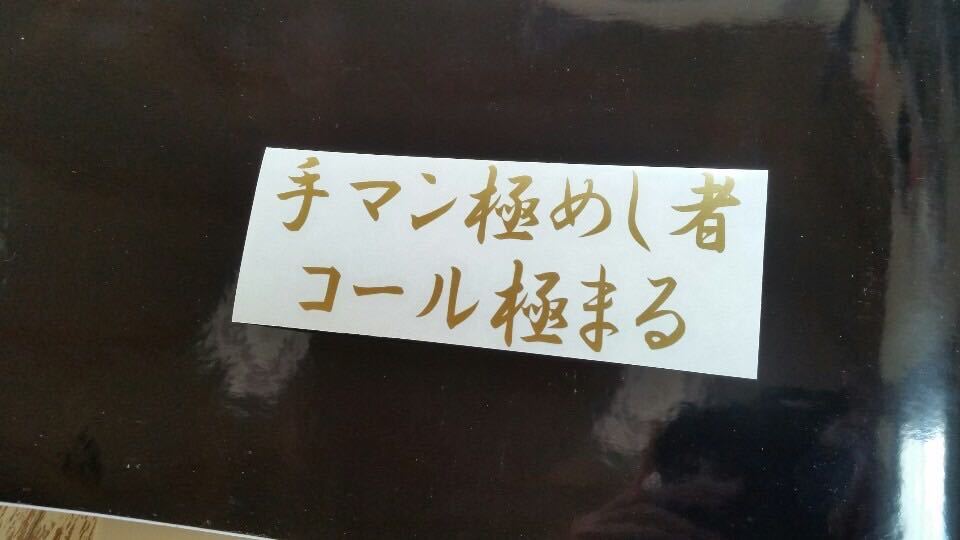 手マン極めし者
コール極まる